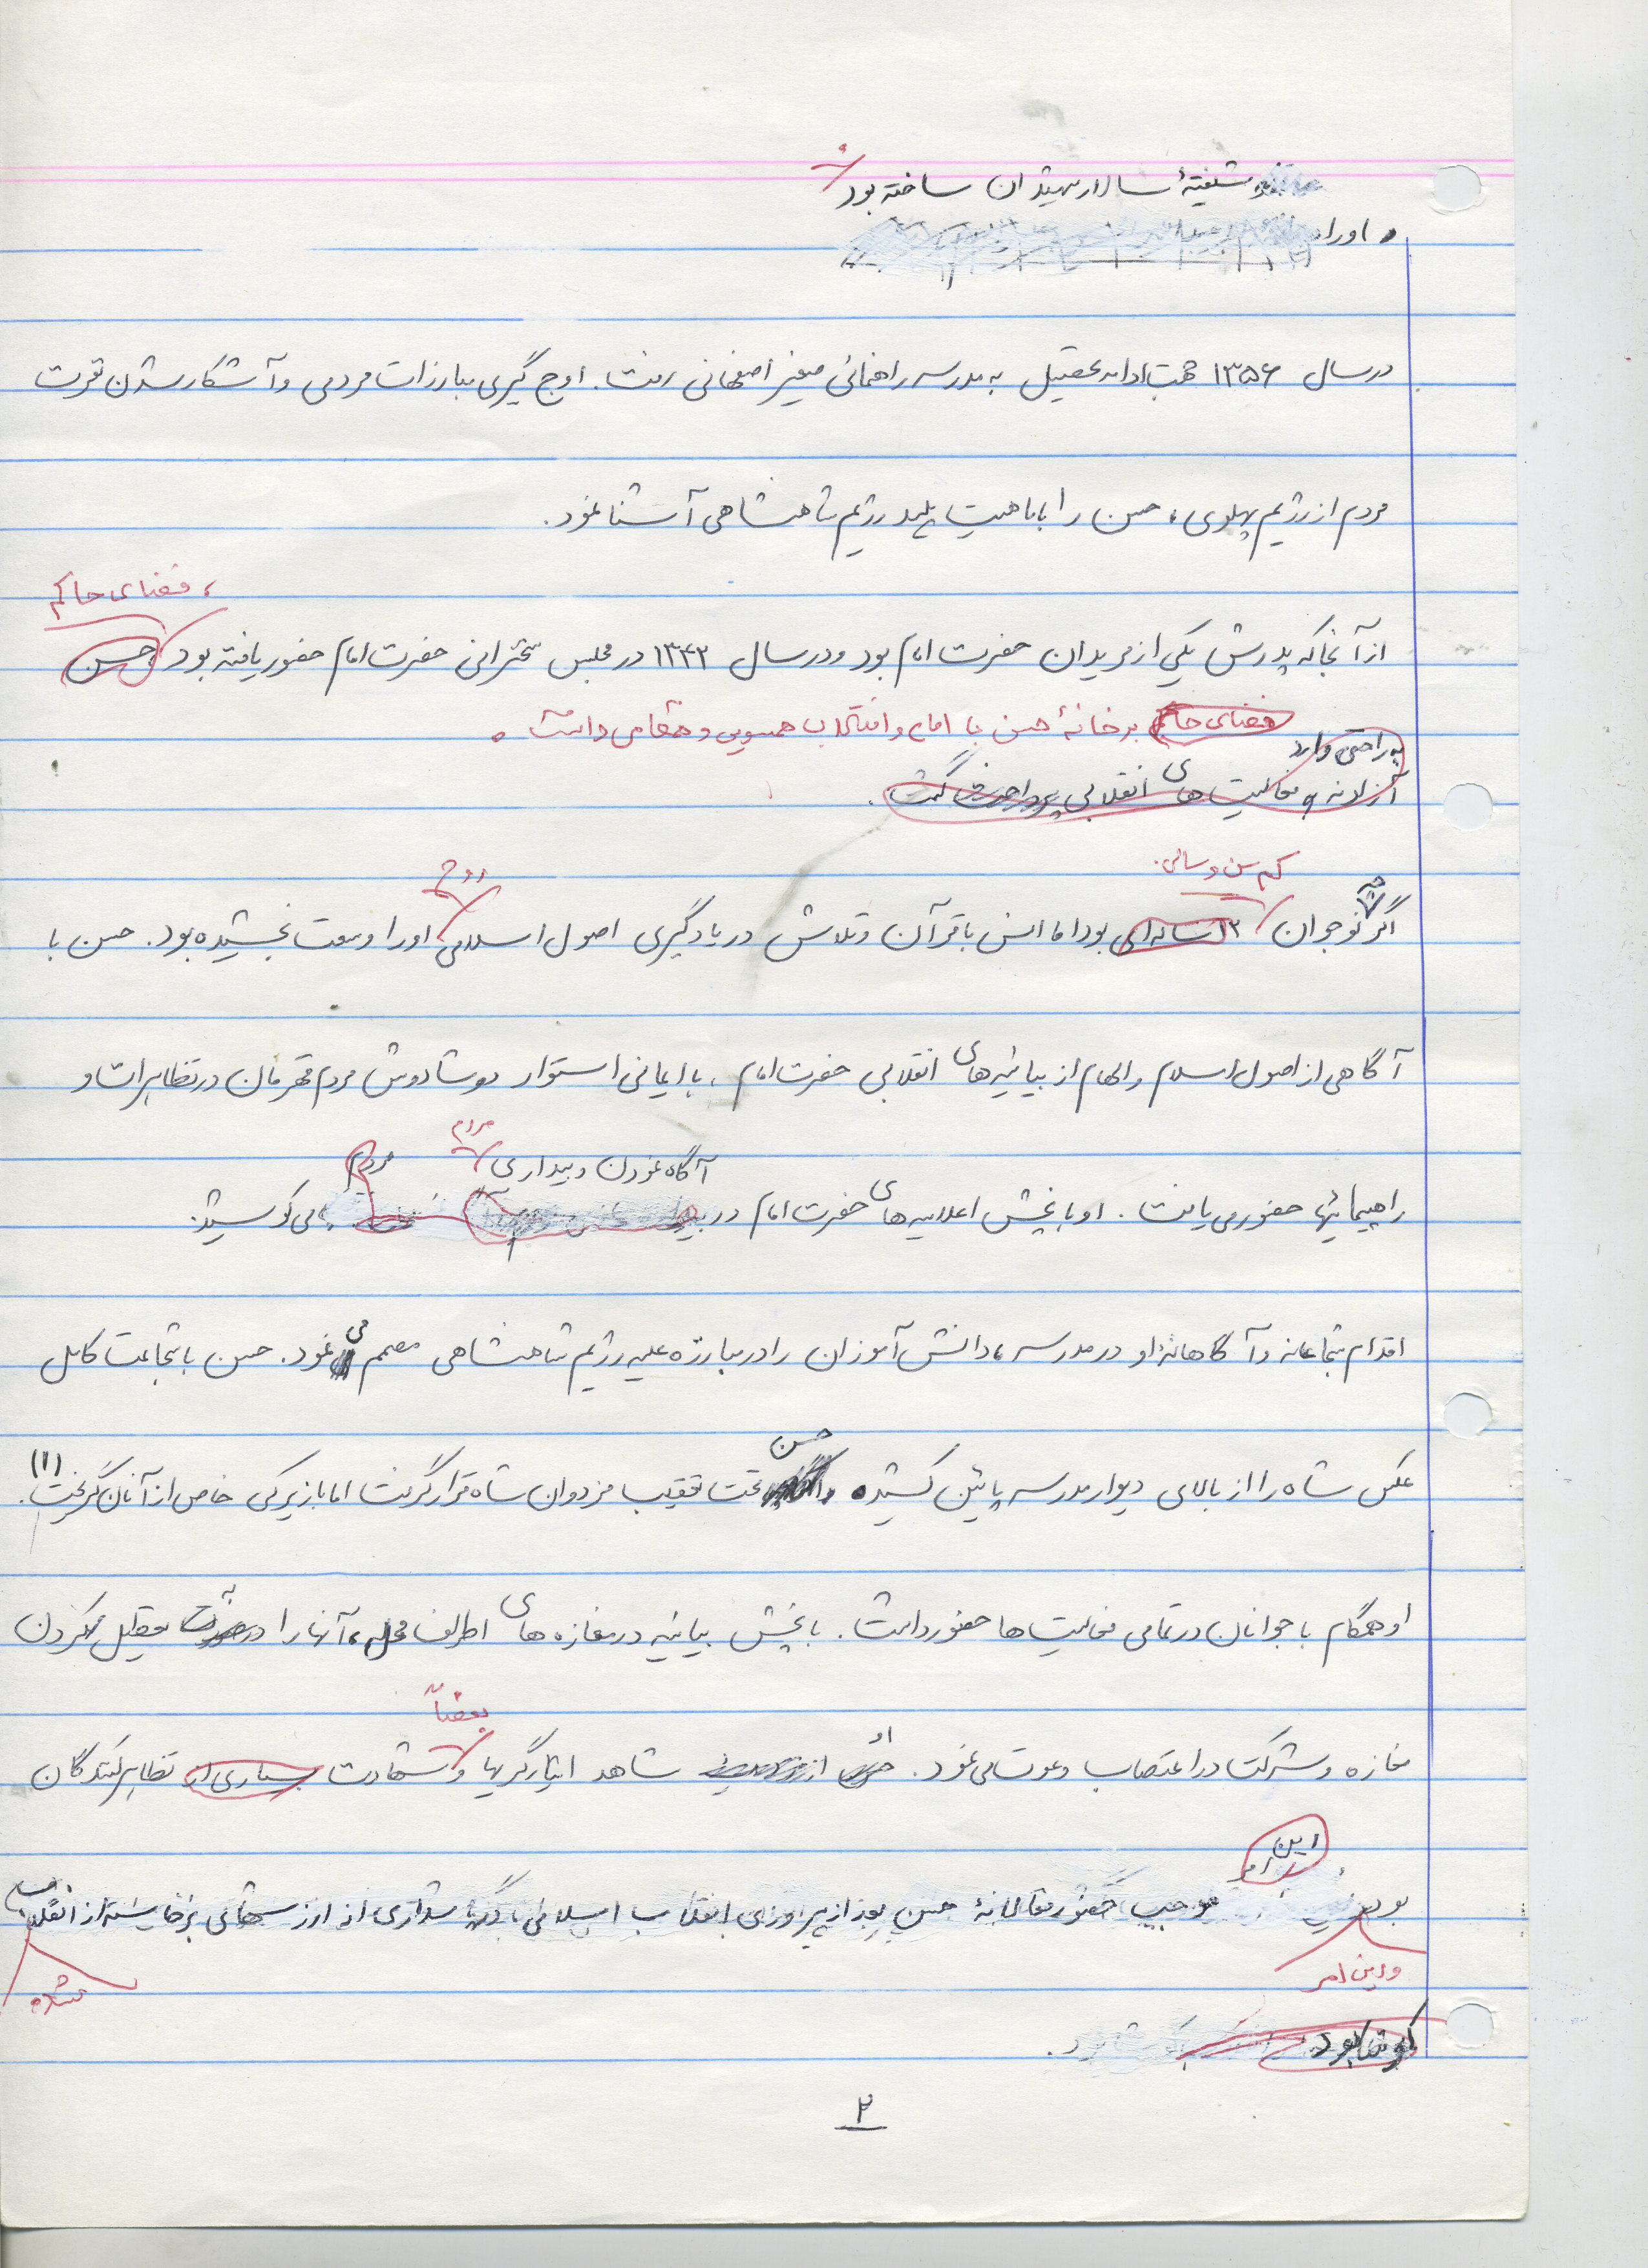 شیفتهٔ سالار شهیدان ساخته بود.
او را
در سال ۱۳۵۶ جهت ادامه تحصیل به مدرسه راهنمائی صغیر اصفهانی رفت. اوج گیری مبارزات مردمی و آشکار شدن نفرت
مردم از رژیم پهلوی، حسن را با ماهیت پلید رژیم شاهنشاهی آشنا نمود.
، فضای حاکم
از آنجا که پدرش یکی از مریدان حضرت امام بود و در سال ۱۳۴۲ در مجلس سخنرانی حضرت امام حضور یافته بود، حسن
فضای حاکم بر خانهٔ حسن با امام و انقلاب همسویی و تفاهمی داشت.
به راحتی وارد
فعالیت های انقلابی گشت.
کم سن و سالی
روح
اگر چه نوجوان ۱۳ ساله ای بود اما انس با قرآن و تلاش در یادگیری اصول اسلامی او را وسعت بخشیده بود. حسن با
آگاهی از اصول اسلام و الهام از بیانیه های انقلابی حضرت امام، با ایمانی استوار دوشادوش مردم قهرمان در تظاهرات و
مردم
آگاه نمودن و بیداری مردم
راهپیمائیها حضور می یافت. او با پخش اعلامیه های حضرت امام در می کوشید.
اقدام شجاعانه و آگاهانهٔ او در مدرسه، دانش آموزان را در مبارزه علیه رژیم شاهنشاهی مصمم می نمود. حسن با شجاعت کامل
حسن
عکس شاه را از بالای دیوار مدرسه پائین کشیده تحت تعقیب مزدوران شاه قرار گرفت اما با زیرکی خاص از آنان گریخت. (۱)
او همگام با جوانان در تمامی فعالیت ها حضور داشت. با پخش بیانیه در مغازه های اطراف محله، آنها را به تعطیل کردن
بعضاً
مغازه و شرکت در اعتصاب دعوت می نمود. او شاهد ایثارگریها و شهادت بسیاری از تظاهرکنندگان
این امر
بود موجب حضور فعالانهٔ حسن بعد از پیروزی انقلاب اسلامی و پاسداری از ارزشهای برخاسته از انقلاب
و این امر
شده
بود.
۲